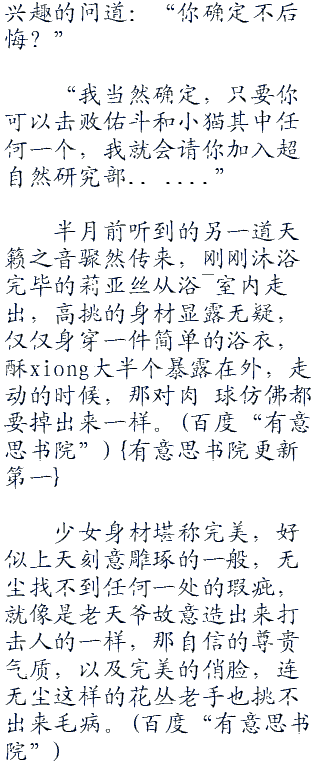 兴趣的问道：“你确定不后
悔？”
“我当然确定，只要你
可以击败佑斗和小猫其中任
何一个，我就会请你加入超
自然研究部．．．．．．”
半月前听到的另一道天
籁之音骤然传来，刚刚沐浴
完毕的莉亚丝从浴¯室内走
出，高挑的身材显露无疑，
仅仅身穿一件简单的浴衣，
酥xiong大半个暴露在外，走
动的时候，那对肉 球仿佛都
要掉出来一样。(百度“有意
思书院”){有意思书院更新
第一}
少女身材堪称完美，好
似上天刻意雕琢的一般，无
尘找不到任何一处的瑕疵，
就像是老天爷故意造出来打
击人的一样，那自信的尊贵
气质，以及完美的俏脸，连
无尘这样的花丛老手也挑不
出来毛病。(百度“有意思书
院”)